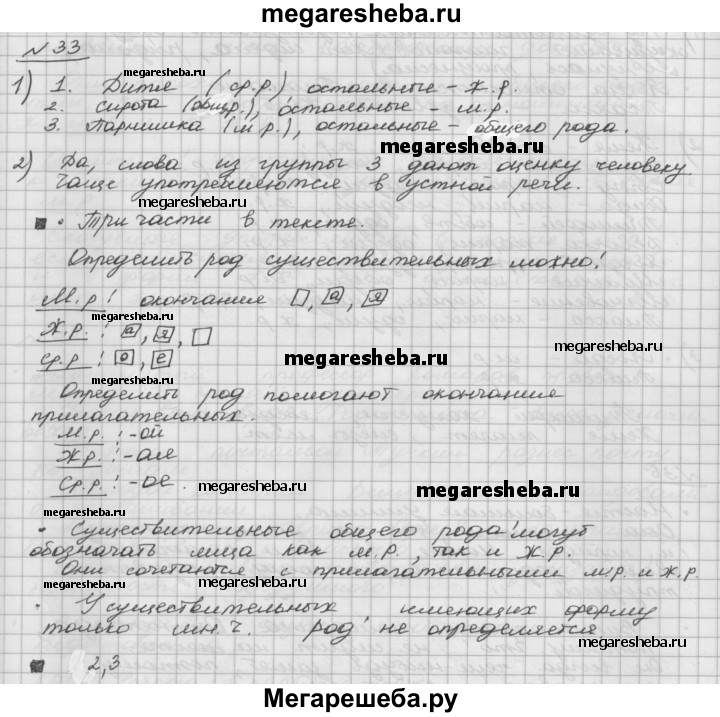 megaresheba.ru
№33
megaresheba.ru
1) 1. Дитя (ср.р.) остальные - ж.р.
2. сирота (общ.р.), остальные - м.р.
megaresheba.ru
3. Парнишка (м.р.), остальные - общего рода.
megaresheba.ru
2) Да, слова из группы 3 дают оценку человеку
Чаще употребляются в устной речи.
megaresheba.ru
• Три части в тексте.
Определить род существительных можно!
megaresheba.ru
М.р! окончания □, а, я
Ж.р.! а, я, □
megaresheba.ru
megaresheba.ru
ср.р! о, е
megaresheba.ru
Определить род помогают окончания
прилагательных.
megaresheba.ru
м.р.!-ой
Ж.р.!-ая
Ср.р.!-ое.
megaresheba.ru
megaresheba.ru
• Существительные общего рода могут
обозначать лица как м.р., так и ж.р.
megaresheba.ru
Они сочетаются с прилагательными м.р. и ж.р.
megaresheba.ru
• У существительных имеющих форму
только мн.ч. род не определяется
megaresheba.ru
megaresheba.ru
2,3
Мегарешеба.ру